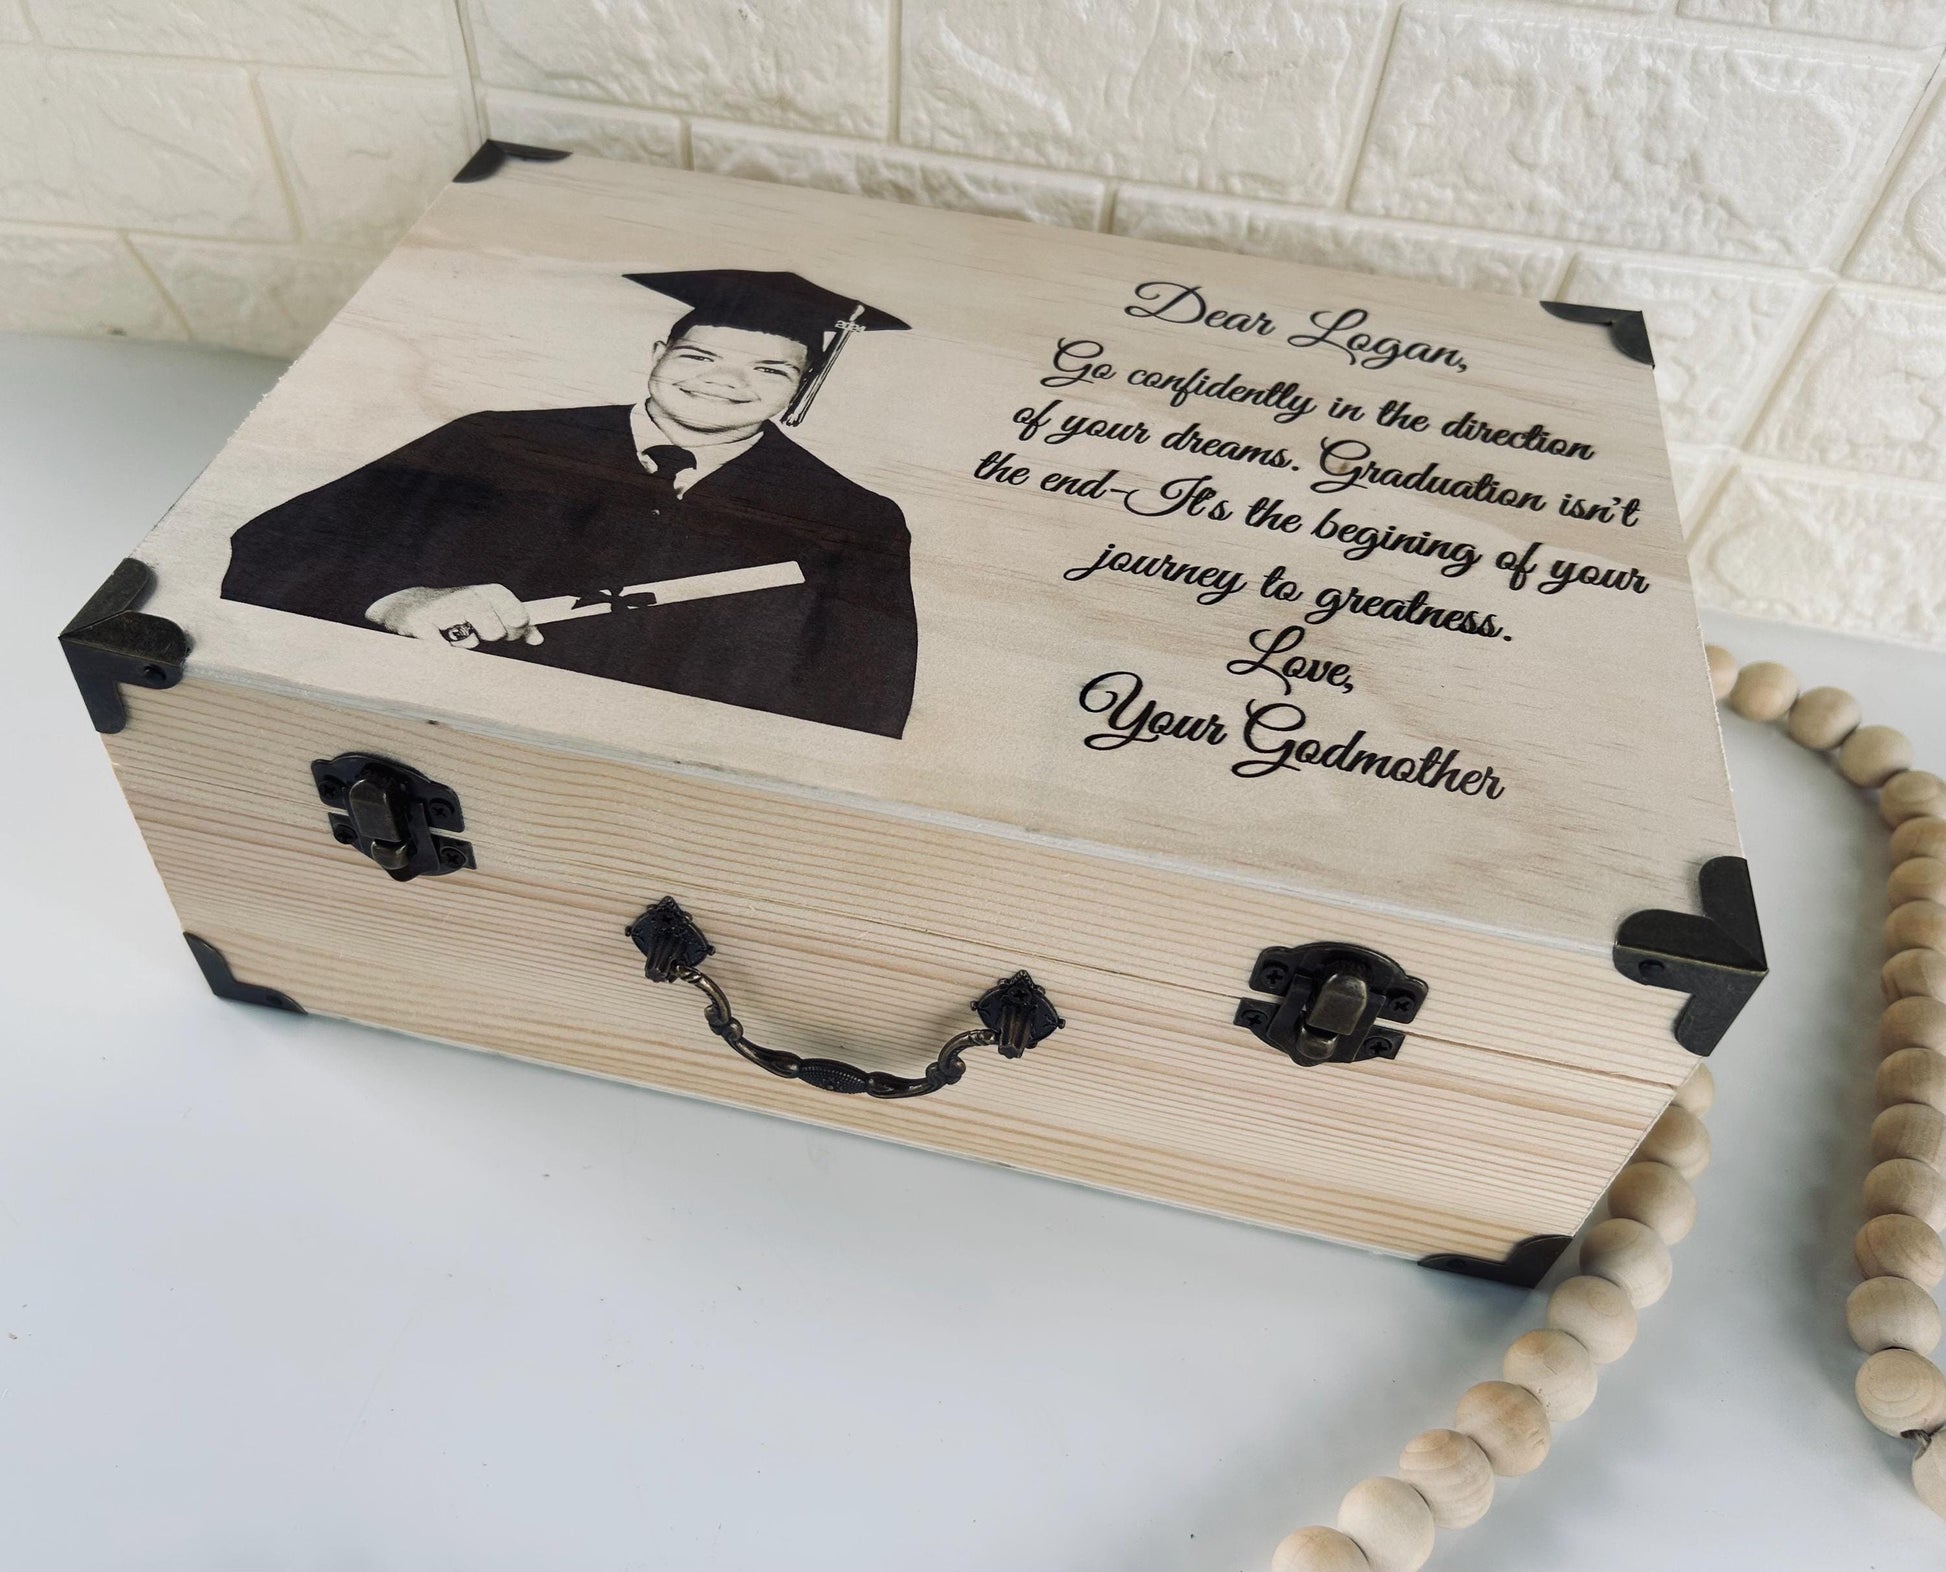 2024
Dear Logan,
Go confidently in the direction
of your dreams. Graduation isn't
the end-It's the begining of your
journey to greatness.
Love,
Your Godmother